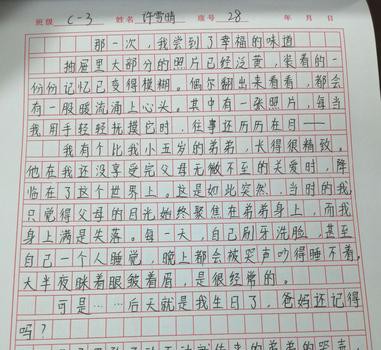 班级 C-3 姓名 许雪晴 座号 28 年 月 日
那一次，我尝到了幸福的味道
抽屉里大部分的照片已经泛黄，装着的一
份份记忆已变得模糊。偶尔翻出来看看，都会
有一股暖流涌上心头。其中有一张照片，每当
我用手轻轻抚摸它时，往事还历历在目——
我有个比我小五岁的弟弟，长得很精致。
他在我还没享受完父母无微不至的关爱时，降
临在了这个世界上。这是如此突然，当时的我
只觉得父母的目光始终聚焦在弟弟身上，而我
身上满是失落。每一天，自己刷牙洗脸，甚至
自己一个人睡觉，晚上都会被哭声吵得睡不着。
大半夜眯着眼皱着眉，是很经常的。
可是……后天就是我生日了，爸妈还记得
吗？